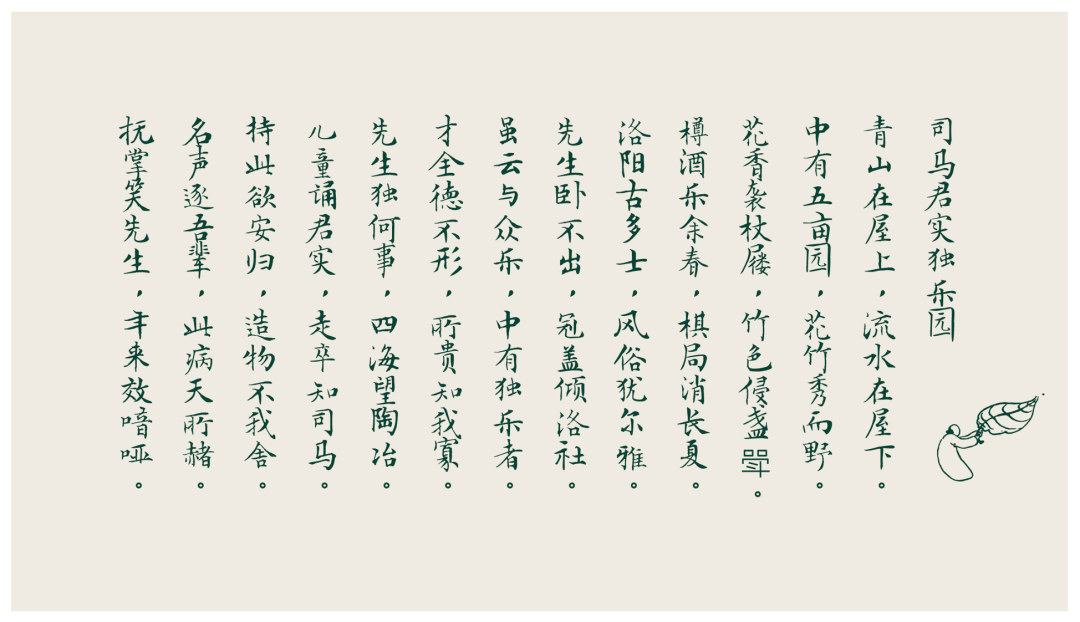 司马君实独乐园
青山在屋上，流水在屋下。
中有五亩园，花竹秀而野。
花香袭杖屦，竹色侵盏斝。
樽酒乐余春，棋局消长夏。
洛阳古多士，风俗犹尔雅。
先生卧不出，冠盖倾洛社。
虽云与众乐，中有独乐者。
才全德不形，所贵知我寡。
先生独何事，四海望陶冶。
儿童诵君实，走卒知司马。
持此欲安归，造物不我舍。
名声逐吾辈，此病天所赭。
抚掌笑先生，年来效喑哑。